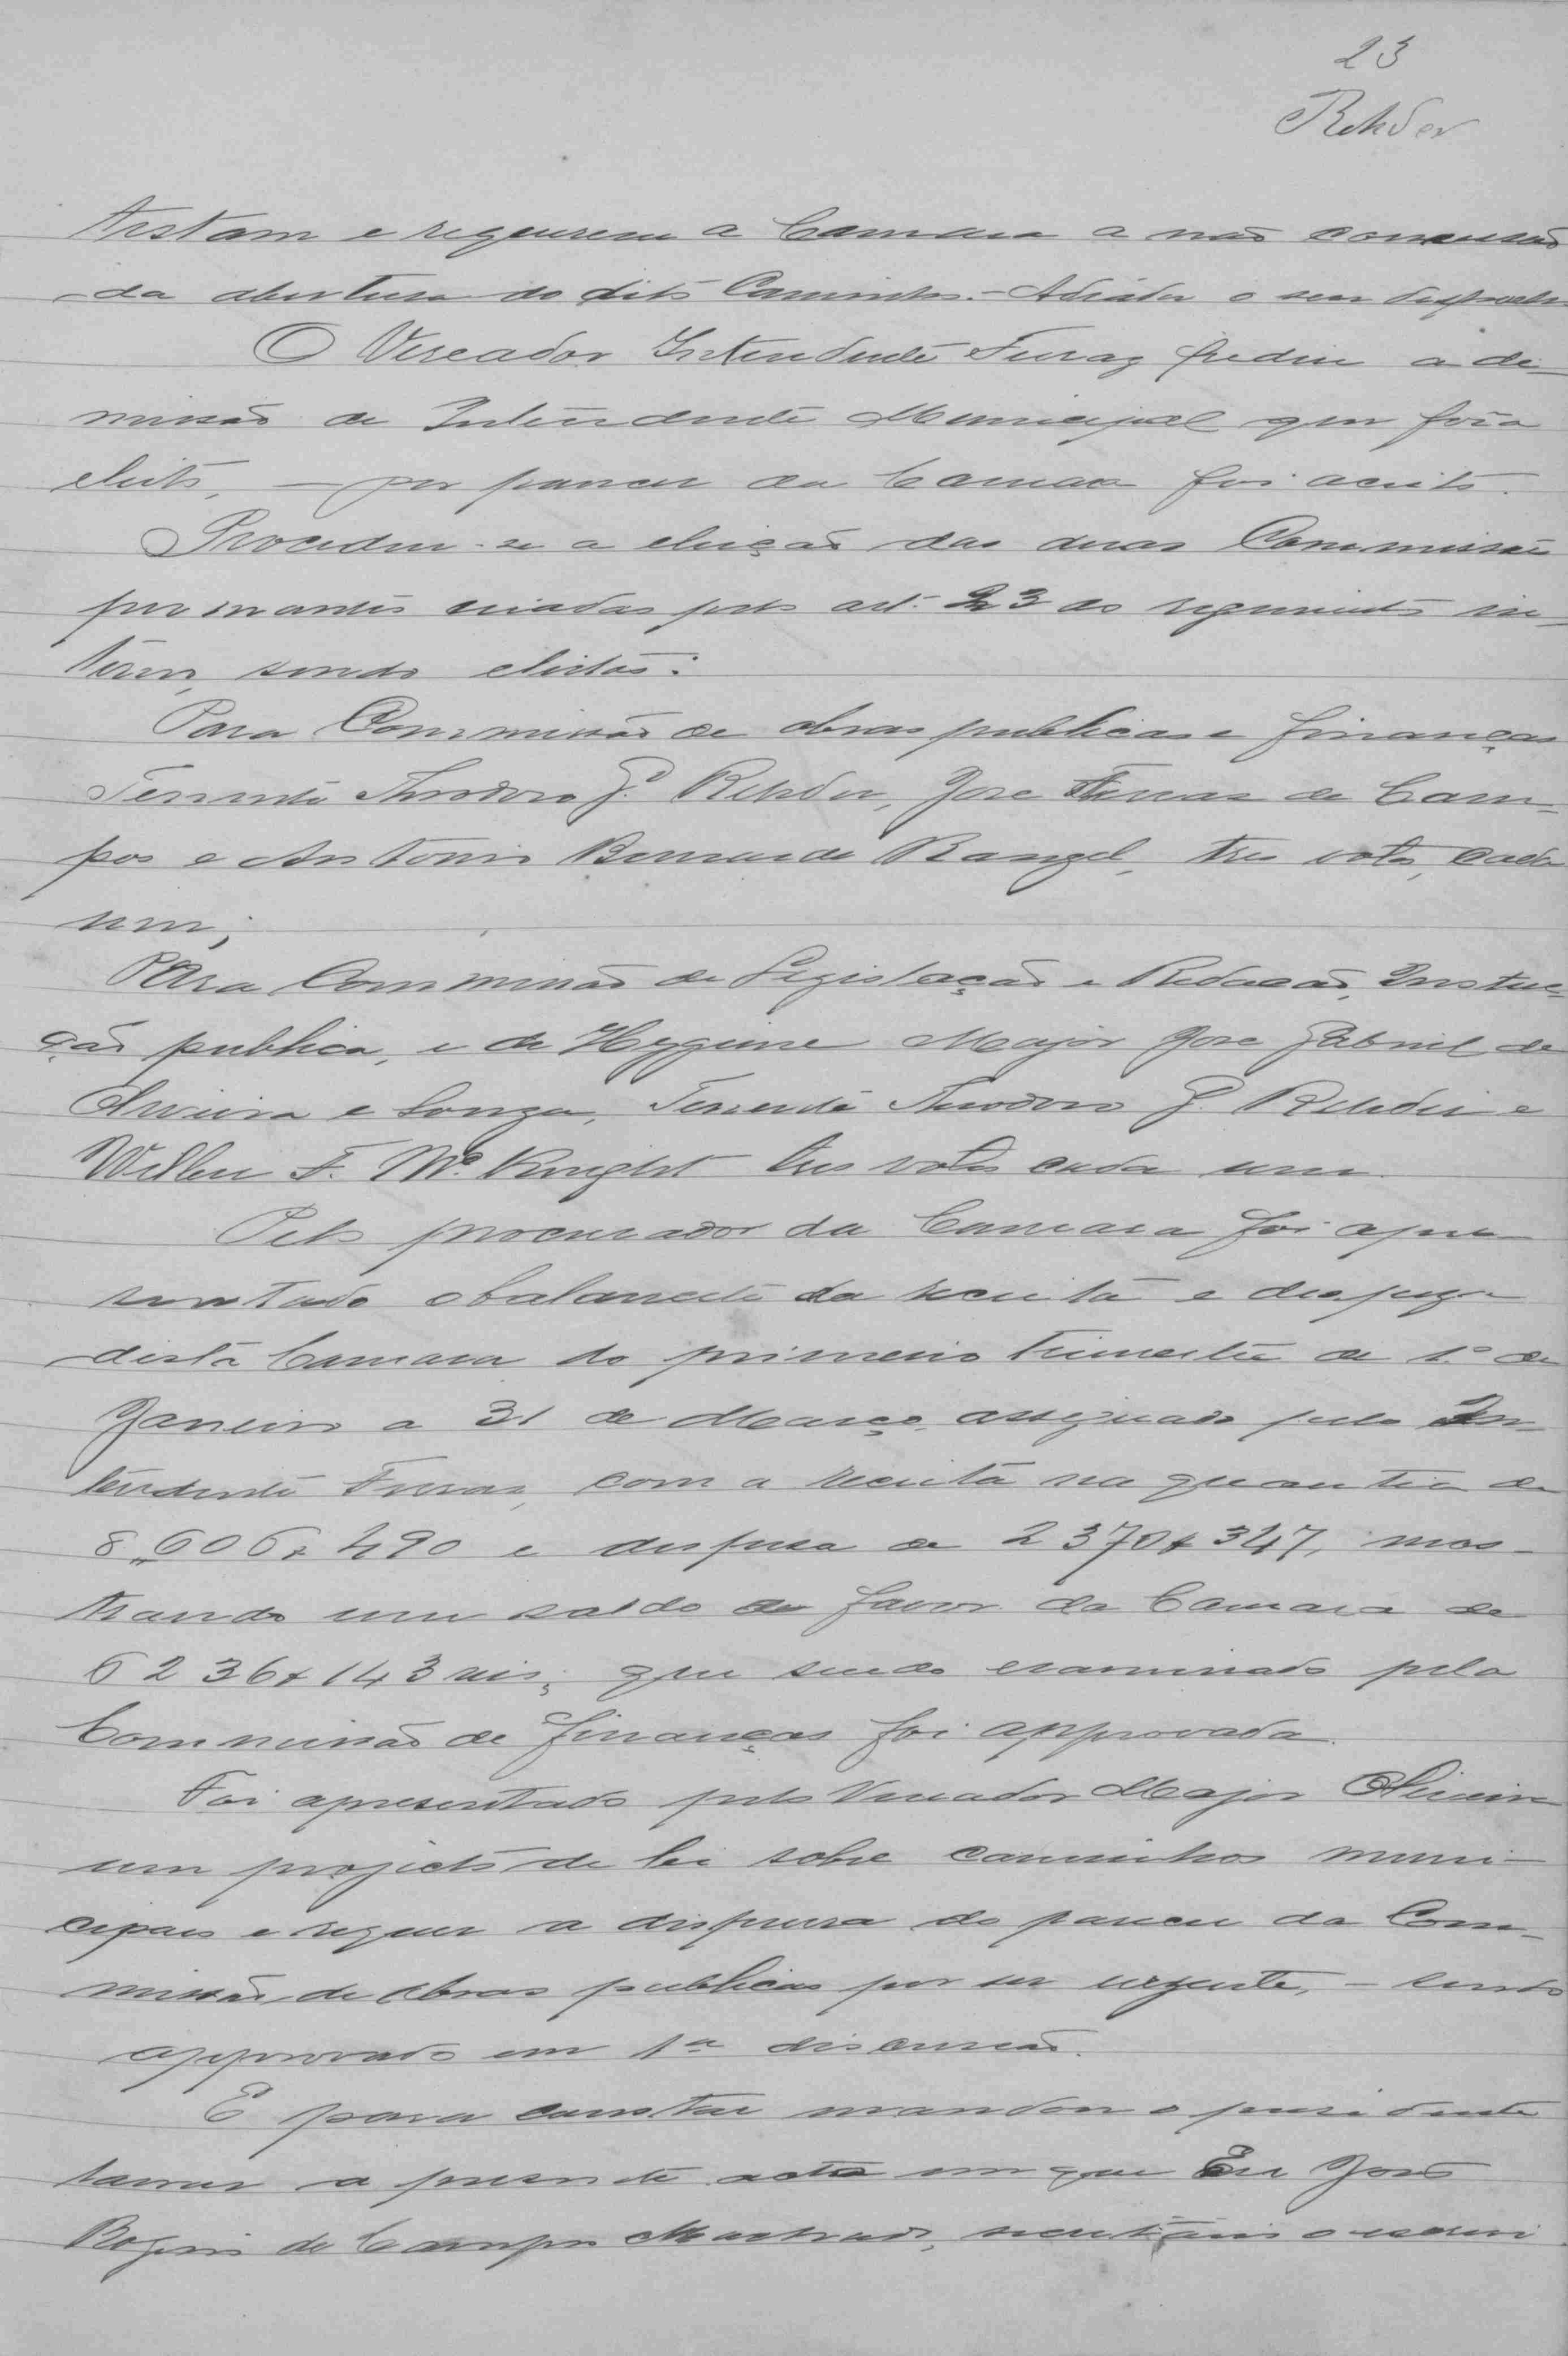 23
Rehder
testam e requerem a Camara a não concessão
da abertura do dito Caminho. - Adiado o seu despacho
O Vereador Intendente Ferraz pediu a de-
missão de Intendente Municipal que fora
eleito, - por parecer da Camara foi aceito.
Procedeu-se a eleição das duas Commissões
permanentes criadas pelo art. 23 do regimento in-
terno, sendo eleitos:
Para Commissão de obras publicas e finanças
Tenente Theodoro G. Rehder, Jose Ferraz de Cam-
pos e Antonio Bernardo Rangel, tres votos, cada
um;
Para Commissão de Legislação e Redacção, Instruc-
ção publica, e de Hygiene Major Jose Gabriel de
Oliveira e Souza, Tenente Theodoro G. Rehder e
F. Mc Knight tres votos cada um.
Pelo procurador da Camara foi apre-
sentado o balancete da receita e despeza
desta Camara do primeiro trimestre de 1º de
Janeiro a 31 de Março, assignado pelo In-
tendente Ferraz, com a receita na quantia de
8,606$490 e despesa de 2370$347, mos-
trando um saldo a favor da Camara de
6236$143 reis; que sendo examinado pela
Commissão de finanças foi approvada.
Foi apresentado pelo Vereador Major Oliveira
um projecto de lei sobre caminhos muni-
cipaes e requer a dispensa do parecer da Com-
missão de obras publicas por ser urgente, - sendo
approvado em 1ª discussão.
E para constar mandou o presidente
lavrar a presente acta em que Eu
de Campos Machado, secretario o escrevi